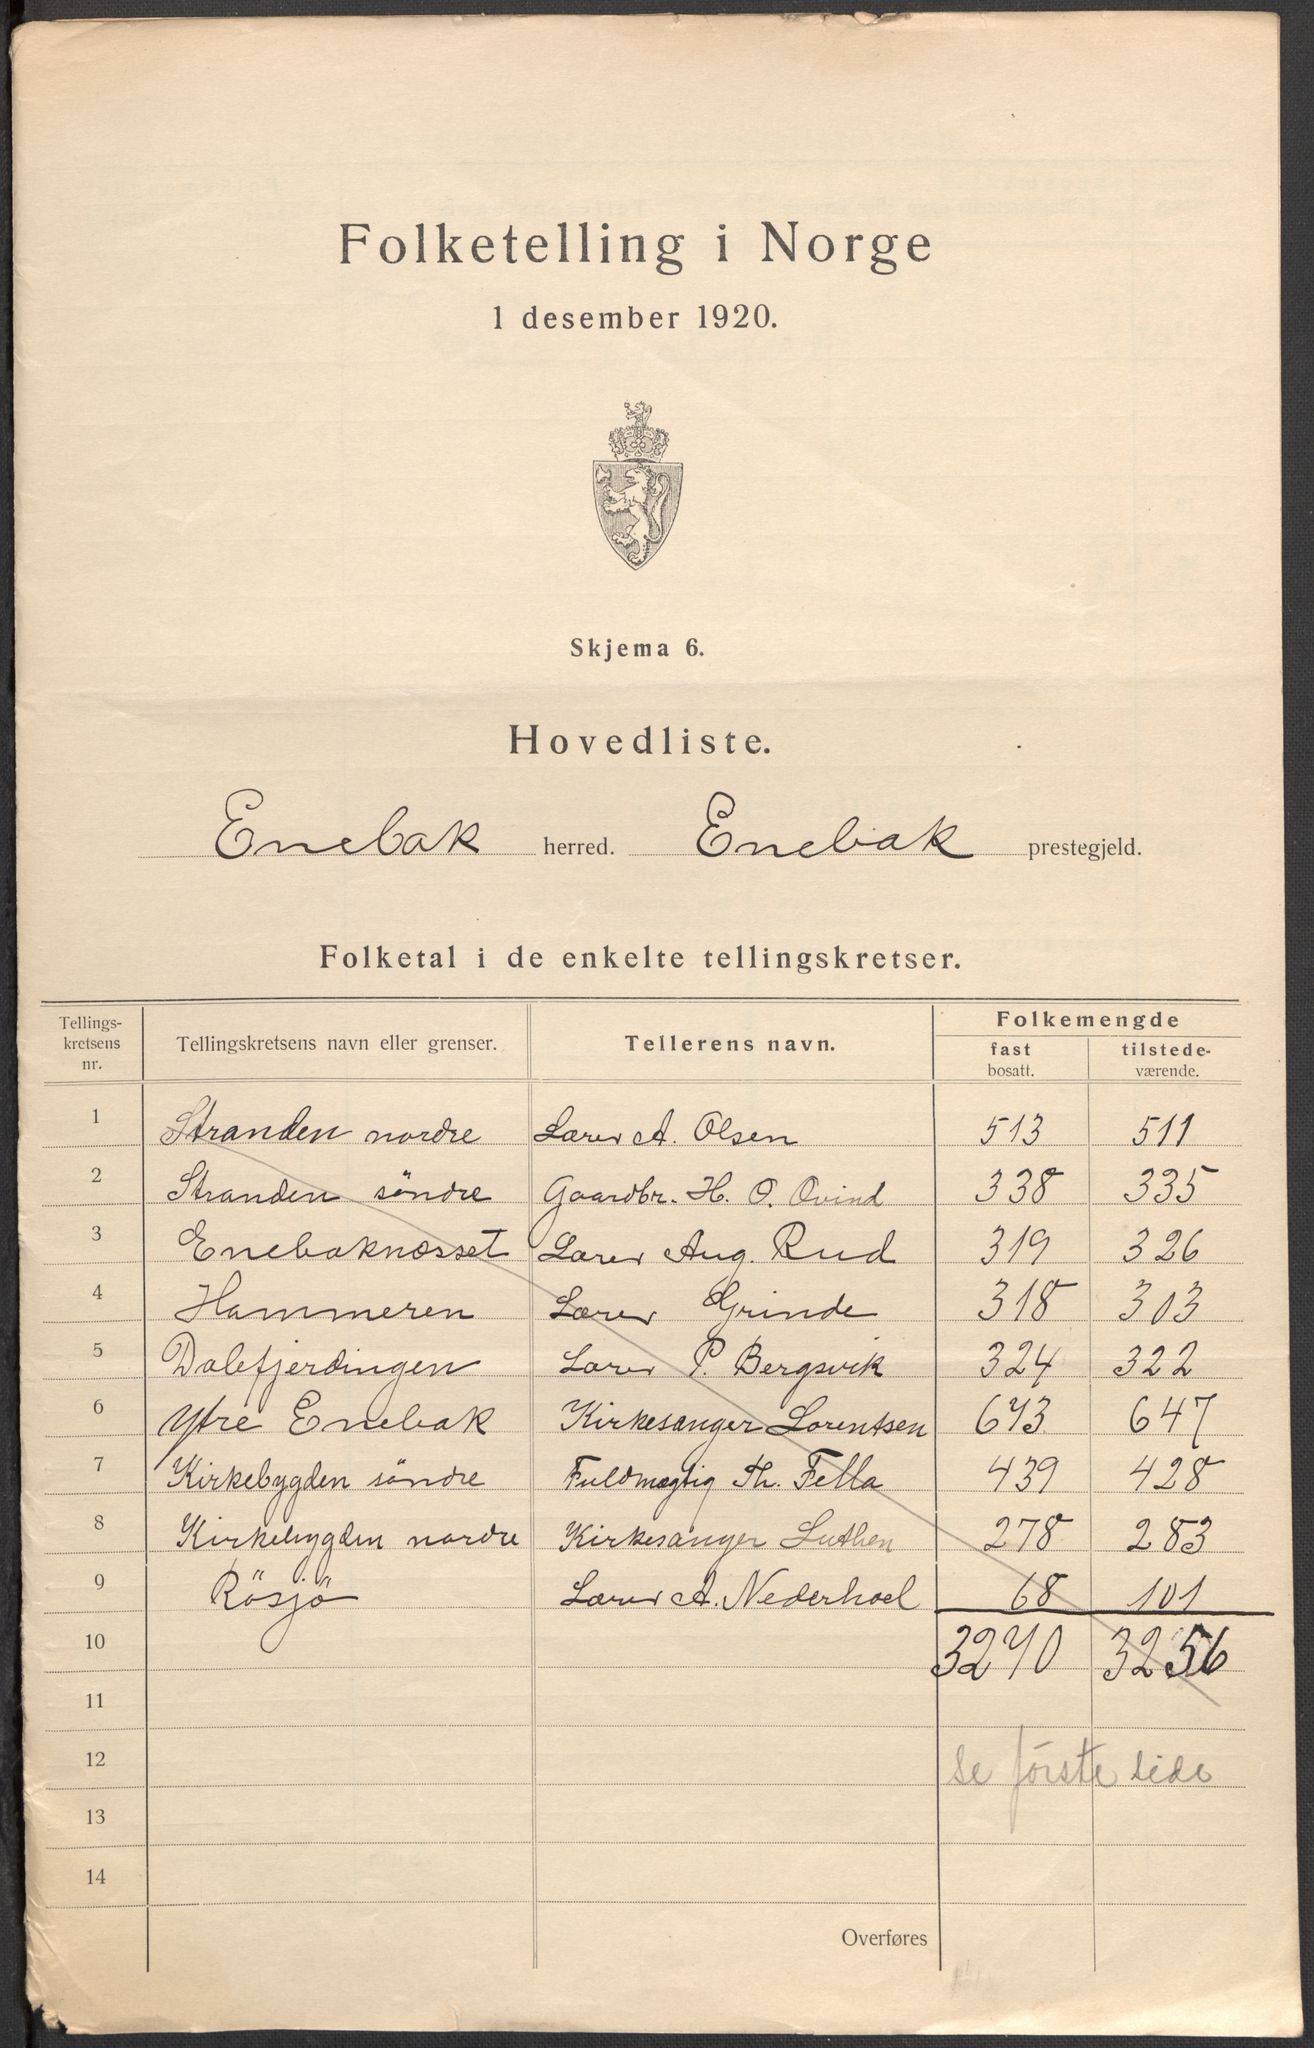 Folketelling i Norge
1 desember 1920.
Skjema 6.
Hovedliste.
Enebak herred. Enebak prestegjeld.
Folketal i de enkelte tellingskretser.
Tellings-kretsens nr. Tellingskretsens navn eller grenser. Tellerens navn. Folkemengde
fast bosatt. tilstede-værende.
1 Stranden nordre Lærer A. Olsen 513 511
2 Stranden söndre Gaardbr. H. O. Ovind 338 335
3 Enebaknæsset Lærer Aug. Rud 319 326
4 Hammeren Lærer Grinde 318 303
5 Dalefjerdingen Lærer P. Bergsvik 324 322
6 Ytre Enebak Kirkesanger Lorentsen 673 647
7 Kirkebygden söndre Fuldmægtig Th. Fella 439 428
8 Kirkebygden nordre Kirkesanger Luthen 278 283
9 Rösjö Lærer A. Nederhoel 68 101
10 3270 3256
11
12 Se første side
13
14
Overføres